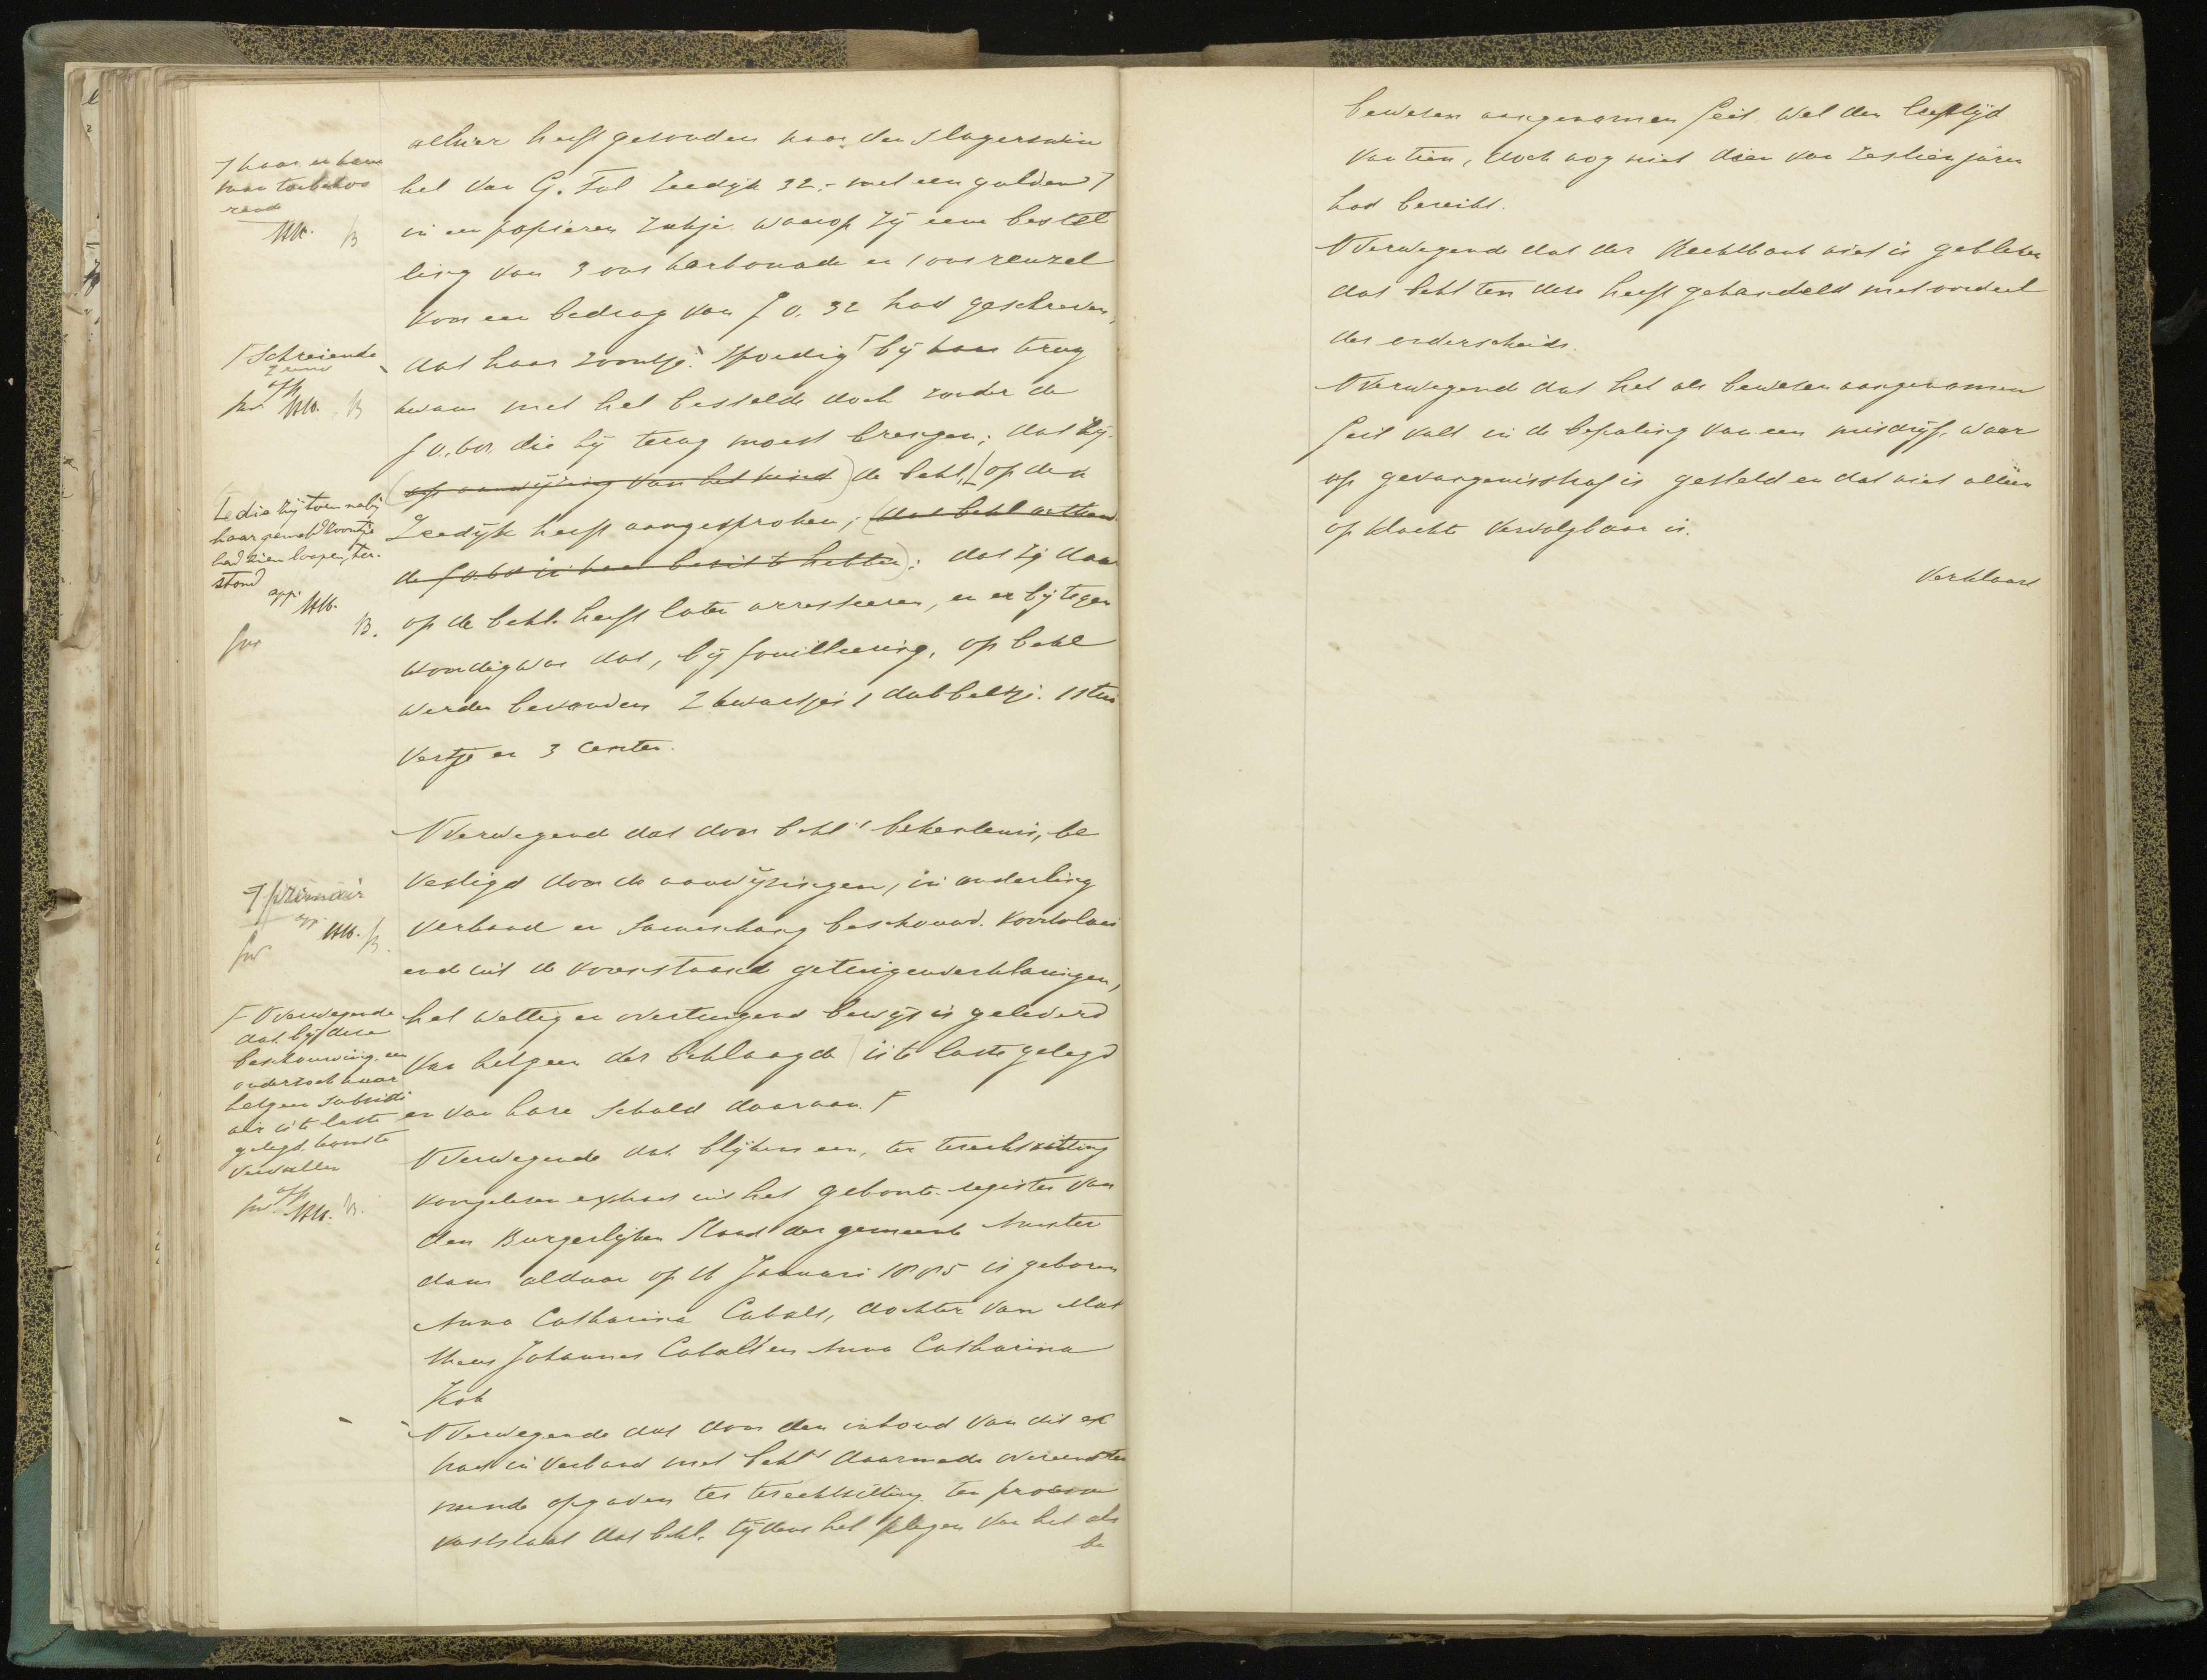 alhier heeft gezonden naar den slagerswin
kel van G. Tol Zeedijk 32,- met een gulden
in een papieren zakje waarop zij eene bestel
ling van 3 ons karbonade en 1 ons reuzel
voor een bedrag van f 0.32 had geschreven,
dat haar zoontje spoedig bij haar terug
kwam met het bestelde doch zonder de
f 0.60, die hij terug moest brengen; dat zij
(op aanwijzing van het kind) de bekl. op den
Zeedijk heeft aangesproken; (dat bekl.
de f 0.60 in haar bezit te hebben); dat zij daar
op de bekl. heeft laten arresteeren, en er bij tegen
woordig was dat, bij fouilleering, op bekl
werden bevonden 2 kwartjes 1 dubbeltje. 1 stui
vertje en 3 centen.
7 haar en haar
man toebehoo
rend
HK. B
Schreiende
app.
HK. B
die zij toen nabij
haar gemeld zoontje
had zien loopen, ter.
stond
app. HK.
B.
Overwegend dat door bekl's bekentenis, be
vestigd door de aanwijzingen, in onderling
verband en samenhang beschouwd. voortvloei
end uit de voorstaande getuigenverklaringen,
het wettig en overtuigend bewijs is geleverd
van hetgeen der beklaagde is te laste gelegd
en van hare schuld daaraan.
7 primair
app. HK. B.
Overwegende
dat bij deze
beschouwing een
onderzoek naar
hetgeen subsidi
air is te laste
gelegd komt te
vervallen
app. HK. B.
Overwegende dat blijkens een, ter terechtzitting
voorgelezen extract uit het geboorte-register van
den Burgerlijken Stand der gemeente Amster
dam aldaar op 16 Januari 1885 is geboren
Anna Catharina Cabalt, dochter van Mat
theus Johannes Cabalt en Anna Catharina
Kok
Overwegende dat door den inhoud van dit ex
tract in verband met bekl's daarmede overeenstem
mende opgaven ter terechtzitting ten processe
vaststaat dat bekl. tijdens het plegen van het als
be
bewezen aangenomen feit wel den leeftijd
van tien, doch nog niet dien van zestien jaren
had bereikt.
Overwegend dat der Rechtbank niet is gebleken
dat bekl ten deze heeft gehandeld met oordeel
des onderscheids.
Overwegend dat het als bewezen aangenomen
feit valt in de bepaling van een misdrijf, waar
op gevangenisstraf is gesteld en dat niet alléén
op klachte vervolgbaar is.
Verklaart